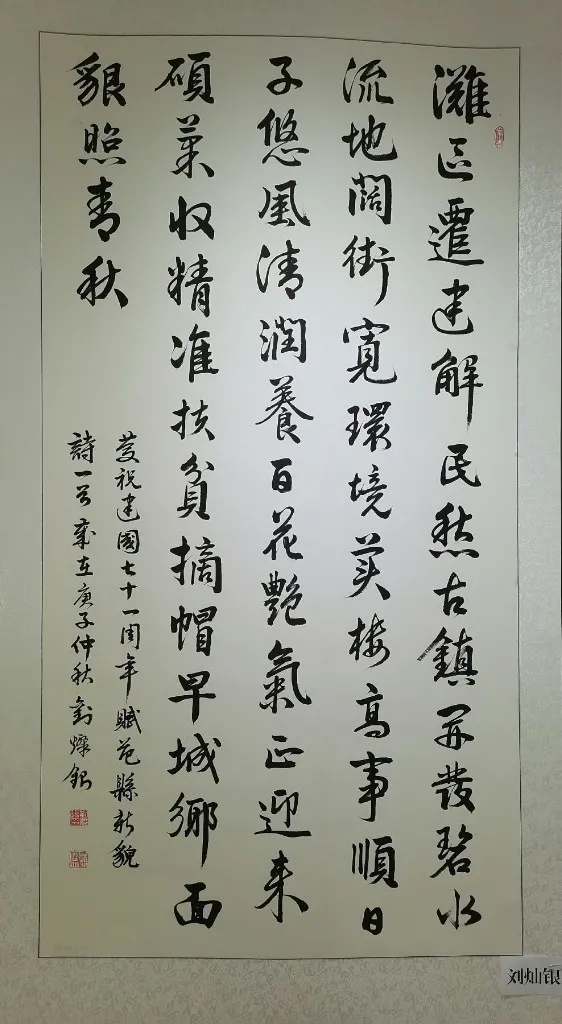 灘区遷建解民愁古鎮开發碧水
流地闊街寬環境美楼高事順日
子悠風清潤養百花艷氣正迎来
碩菓收精准扶貧摘帽早城鄉面
貌照青秋
慶祝建國七十一周年賦范縣新貌
詩一首歲在庚子仲秋劉燦銀
刘灿银